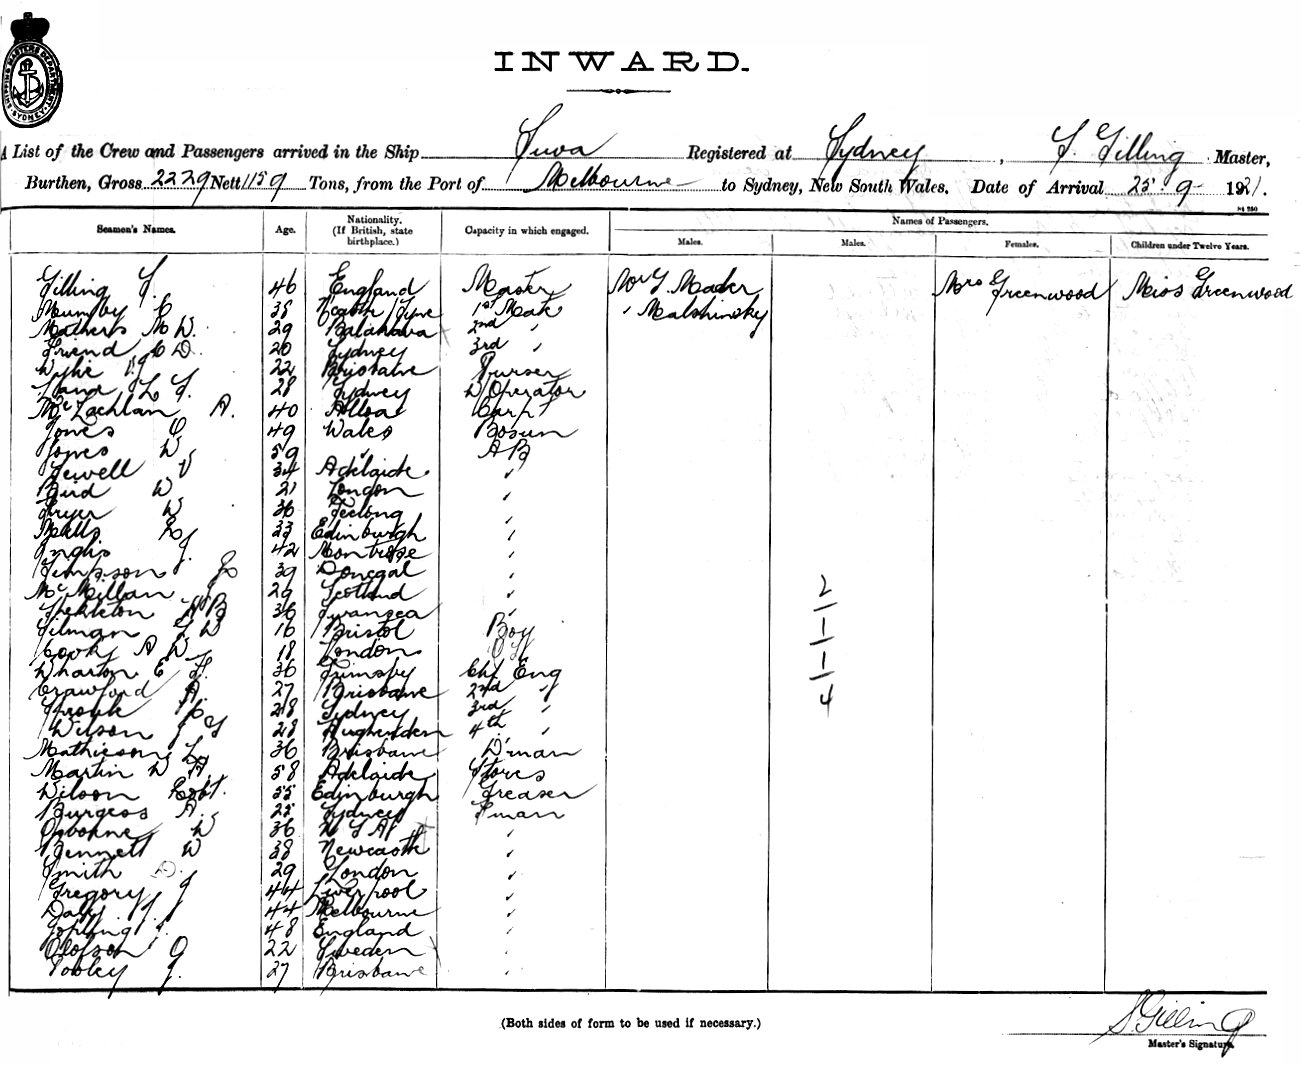 SHIPPING MASTERS DEPARTMENT SYDNEY
INWARD.
A List of the Crew and Passengers arrived in the Ship Suva Registered at Sydney, S. Gilling Master,
Burthen, Gross 2229 Nett 1159 Tons, from the Port of Melbourne to Sydney, New South Wales. Date of Arrival 25.9 1921.
Seamen's Names. Age. Nationality. (If British, state birthplace.) Capacity in which engaged. Names of Passengers.
Males. Males. Females. Children under Twelve Years.
Gilling S. 46 England Master Mr G. Mader Mrs Greenwood Miss Greenwood
Mumby C 38 North Tyne 1st Mate " Malshinsky
Mathers M W. 29 Balaklava 2nd "
Friend C D. 20 Sydney 3rd "
Wylie 22 Brisbane Purser
28 Sydney W Operator
McLachlan A. 40 Alloa Carpt
Jones C 49 Wales Bosun
Jones W 59 " A B
Jewell V 34 Adelaide "
Bird W 21 London "
Fryer W 36 Geelong "
33 Edinburgh "
Inglis J. 42 Montrose "
Simpson 39 Donegal "
McMillan J 29 Scotland "
Shekleton 36 Swansea "
Gilman G W 16 Bristol Boy
A W 18 London
Wharton E S. 36 Grimsby Chf Eng
Crawford A. 27 Brisbane 2nd "
28 Sydney 3rd "
Wilson J G 28 Hughenden 4th "
Mathieson L 36 Brisbane D'man
Martin W A 58 Adelaide Stores
Wilson Robt. 55 Edinburgh Greaser
Burgess A. 25 Sydney F'man
Osborne W 36 U S A "
Bennett W 38 Newcastle "
Smith D. 29 London "
Gregory J 44 Liverpool "
Daly J 44 Melbourne "
Jopling 48 England "
Olofson O 22 Sweden "
Tooley J. 27 Brisbane "
4-1-1-1-2
(Both sides of form to be used if necessary.)
S. Gilling
Master's Signature.